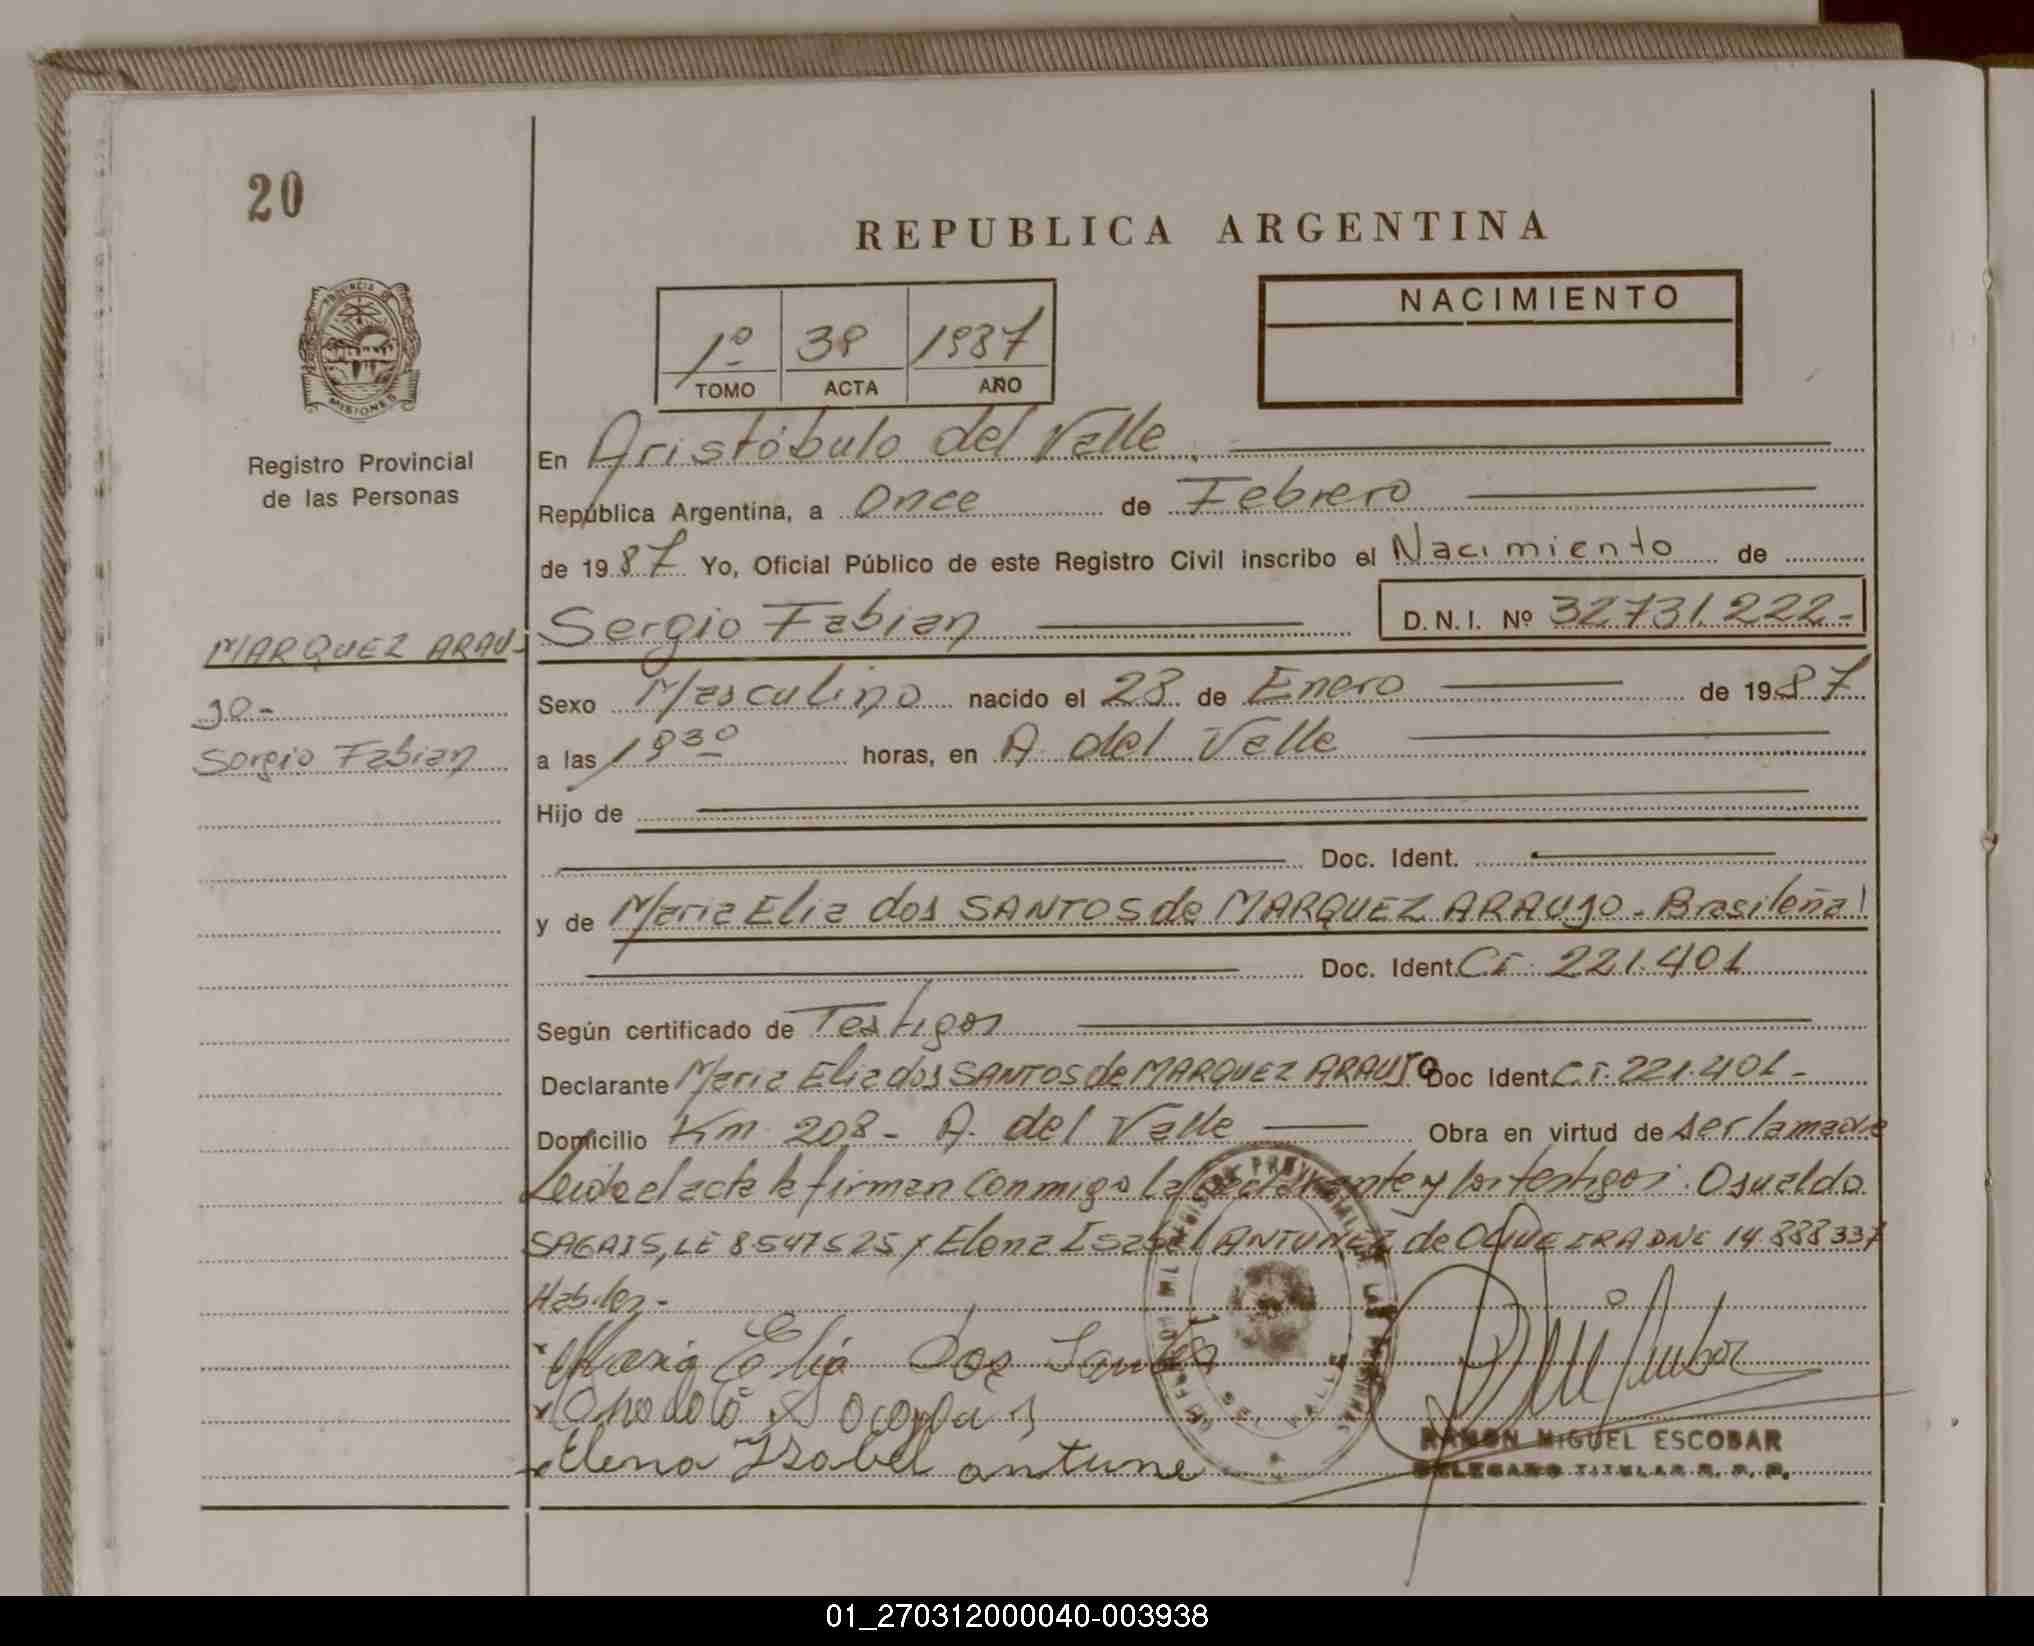 20
REPUBLICA ARGENTINA
PROVINCIA DE
MISIONES
1º 38 1987
TOMO ACTA AÑO
NACIMIENTO
Registro Provincial
de las Personas
En Aristóbulo del Valle,
República Argentina, a Once de Febrero
de 1987 Yo, Oficial Público de este Registro Civil inscribo el Nacimiento de
Sergio Fabian D.N.I. Nº 32731.222-
MARQUEZ ARAU-
jo-
Sergio Fabian
Sexo Masculino nacido el 28 de Enero de 1987
a las horas, en A. del Valle
Hijo de
Doc. Ident.
y de Maria Elia dos SANTOS de MARQUEZ ARAUJO-Brasileña
Doc. Ident. CI. 221.401
Según certificado de Testigos
Declarante Maria Elia dos SANTOS de MARQUEZ ARAUJO Doc Ident C.I. 221.401-
Domicilio Km. 208- A. del Valle Obra en virtud de ser la madre
Leida el acta la firman conmigo la declarante y los testigos: Osvaldo
SAGAIS, LE 8547525 y Elena Isabel ANTUNEZ de OLIVEIRA DNI 14.888337
Habiles-
Maria Elia Dos Santos
Elena Izabel antune
RAMON MIGUEL ESCOBAR
DELEGADO TITULAR R. P. P.
01_270312000040-003938